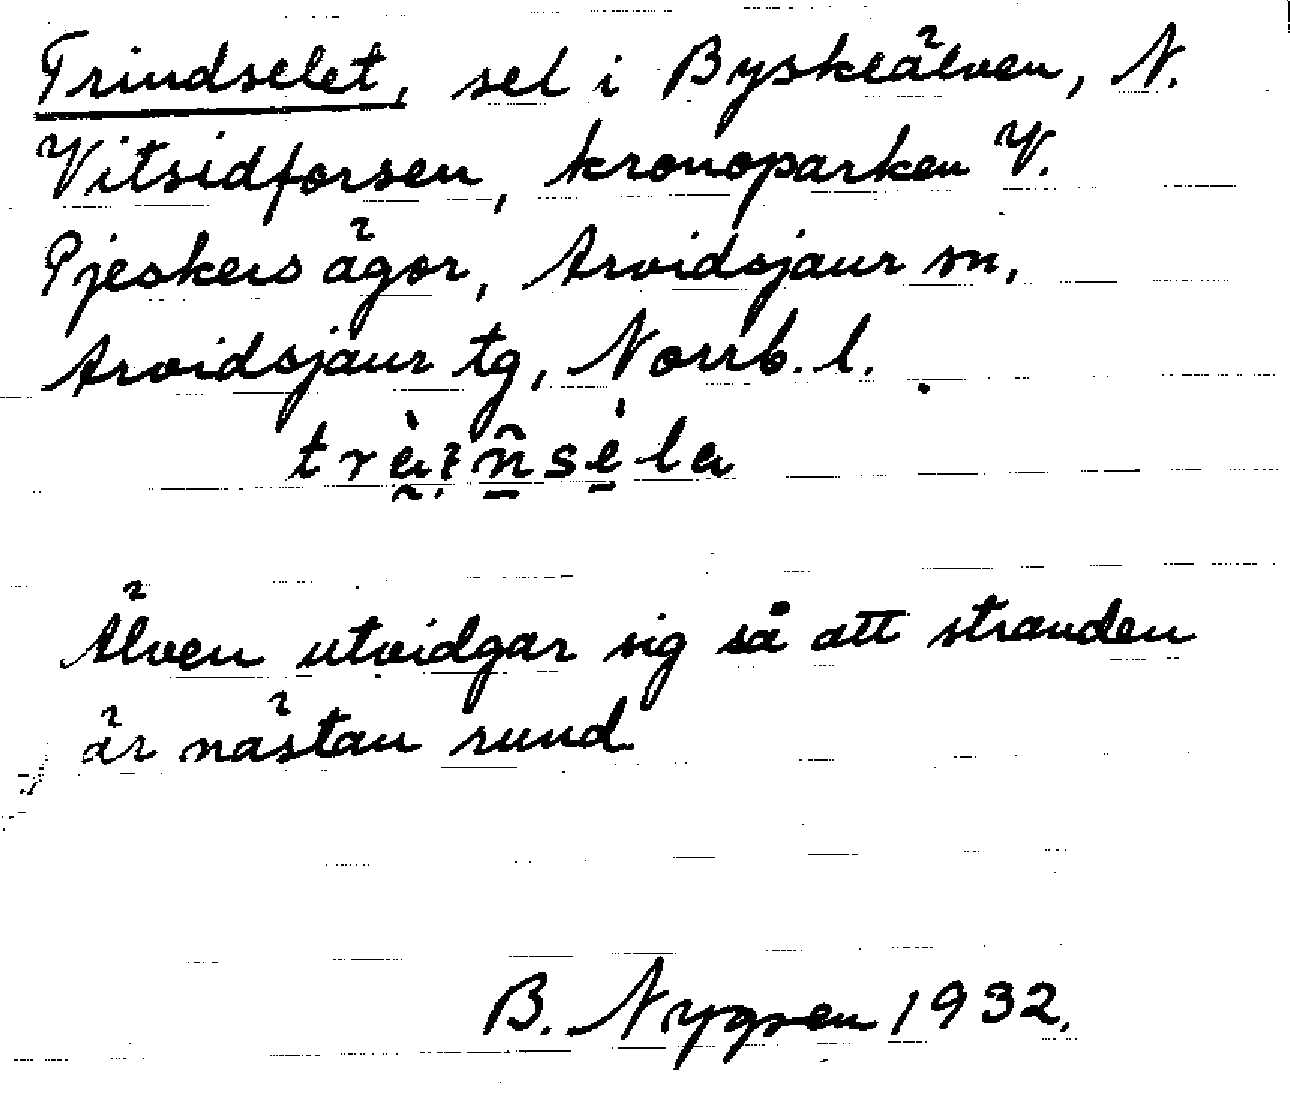 Trindselet, sel i Byskeälven, N.
Vitsidforsen, kronoparken V.
Pjeskers ägor, Arvidsjaur sn,
Arvidsjaur tg, Norrb. l.
Älven utvidgar sig så att stranden
är nästan rund
B. Nygren 1932.